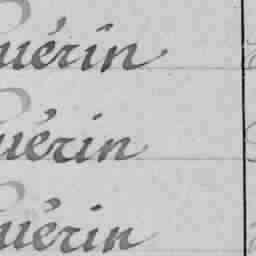 uérin
uérin
uérin